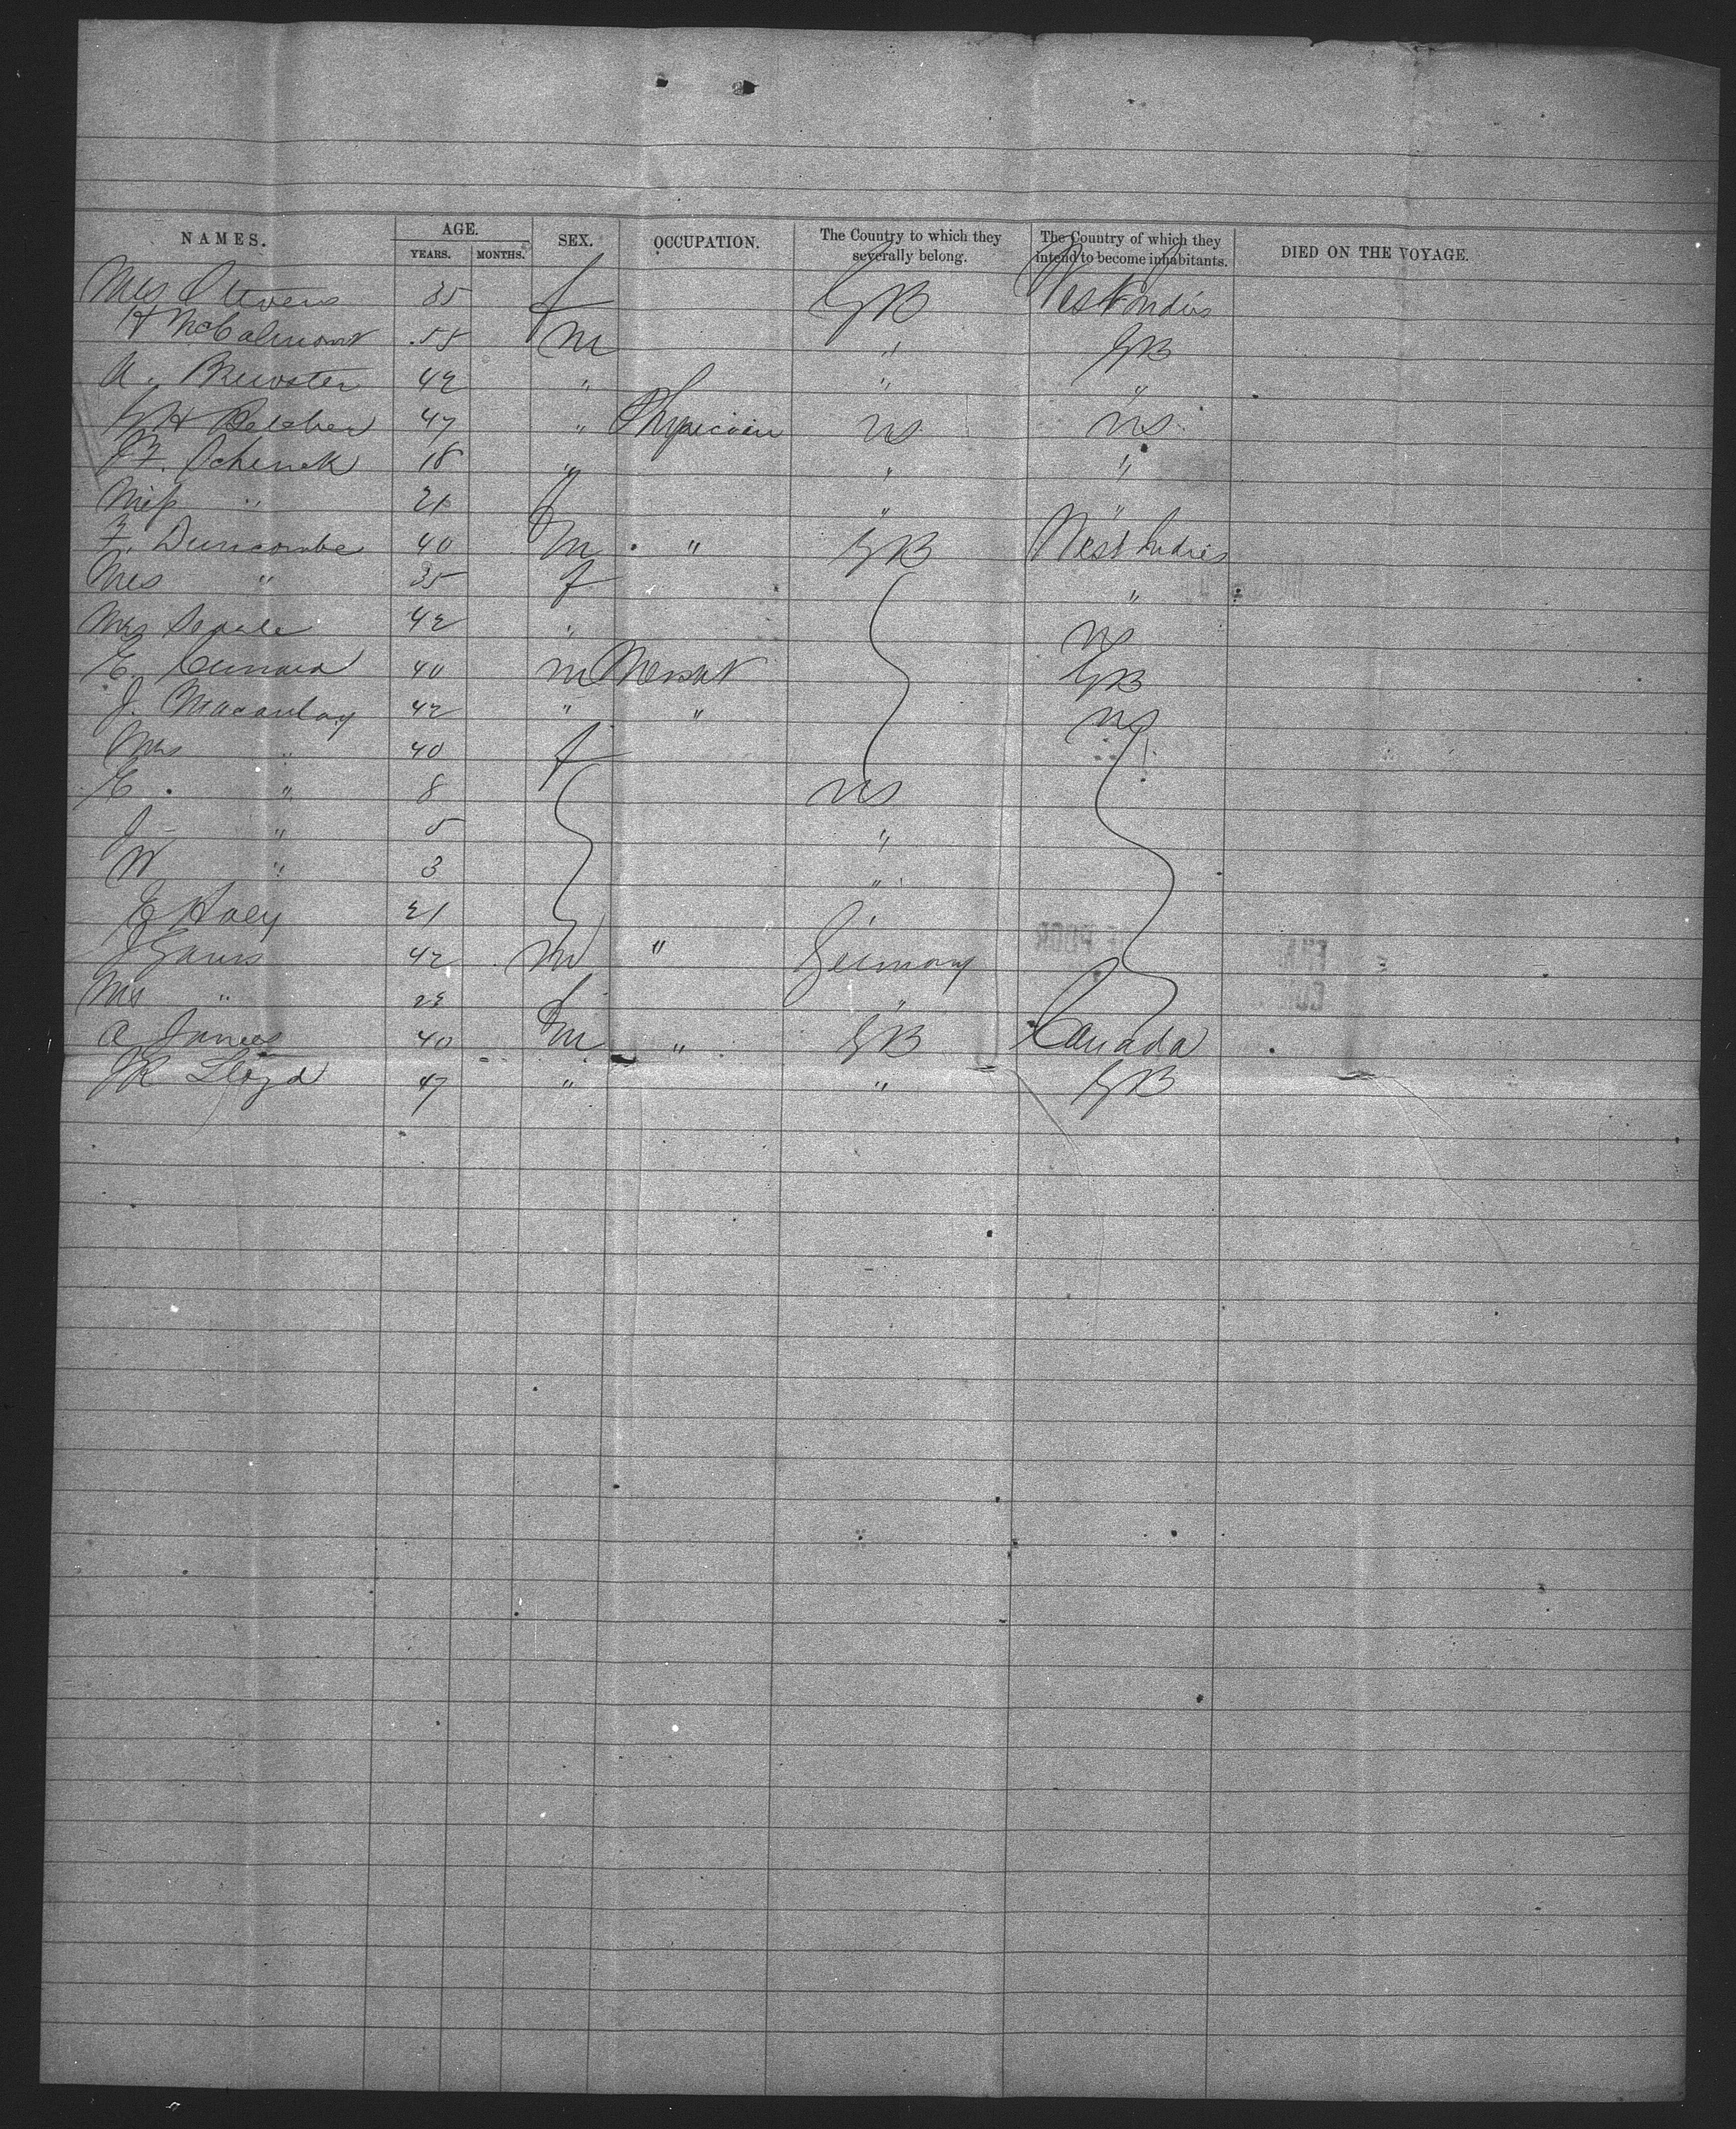 NAMES. AGE. YEARS. MONTHS. SEX. OCCUPATION. The Country to which they severally belong. The Country of which they intend to become inhabitants. DIED ON THE VOYAGE.
Mrs Stevens 35 f GB West Indies
H McCalmont 55 m " GB
A. Brewster 42 " " "
G H Belcher 47 " Physician US US
J F. Schenck 18 " " "
Miss " 21 f " "
F. Duncombe 40 m " GB West Indies
Mrs " 35 f "
Mrs 42 " US
E Cunard 40 m Mercht GB
J. Macaulay 42 " " US
Mrs " 40 f
E. " 8 US
J " 5 "
W " 3 "
E Hoey 21 "
J 42 m " Germany
Mrs " 23 f "
A James 40 m " GB Canada
J R Lloyd 47 " " GB